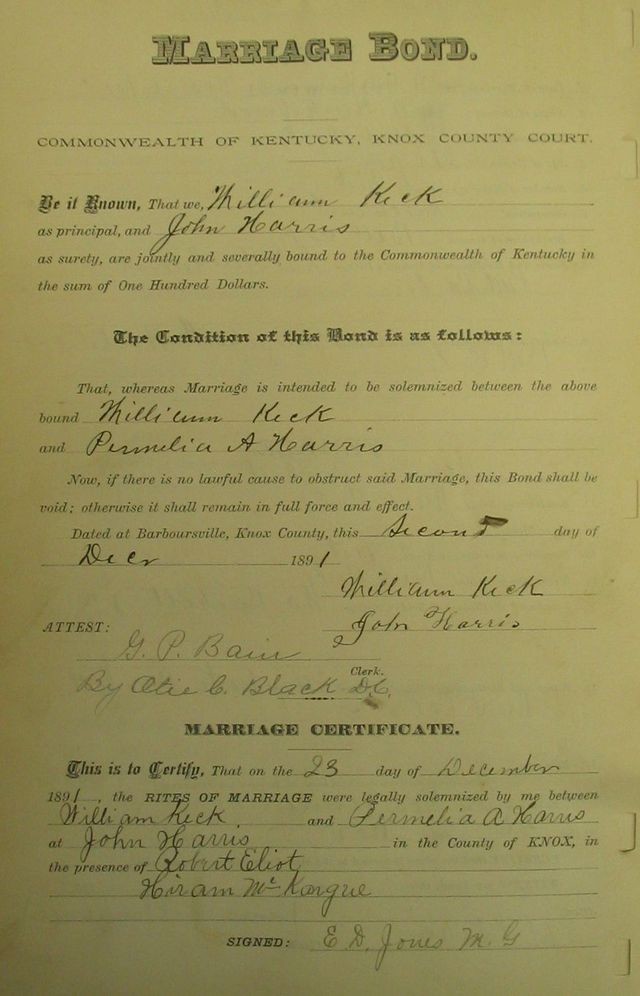 MARRIAGE BOND.
COMMONWEALTH OF KENTUCKY, KNOX COUNTY COURT.
Be it Known, That we, William Keck
as principal, and John Harris
as surety, are jointly and severally bound to the Commonwealth of Kentucky in
the sum of One Hundred Dollars.
The Condition of this Bond is as follows:
That, whereas Marriage is intended to be solemnized between the above
bound William Keck
and Permelia A Harris
Now, if there is no lawful cause to obstruct said Marriage, this Bond shall be
void; otherwise it shall remain in full force and effect.
Dated at Barboursville, Knox County, this Second day of
Decr 1891
William Keck
John Harris
ATTEST:
G. P. Bain
Clerk.
By Otie C. Black D.C.
MARRIAGE CERTIFICATE.
This is to Certify, That on the 23 day of December
1891, the RITES OF MARRIAGE were legally solemnized by me between
William Keck and Permelia A Harris
at John Harris in the County of KNOX, in
the presence of Robert Eliot
Hiram Mc Kargue
SIGNED: E. D. Jones M. G